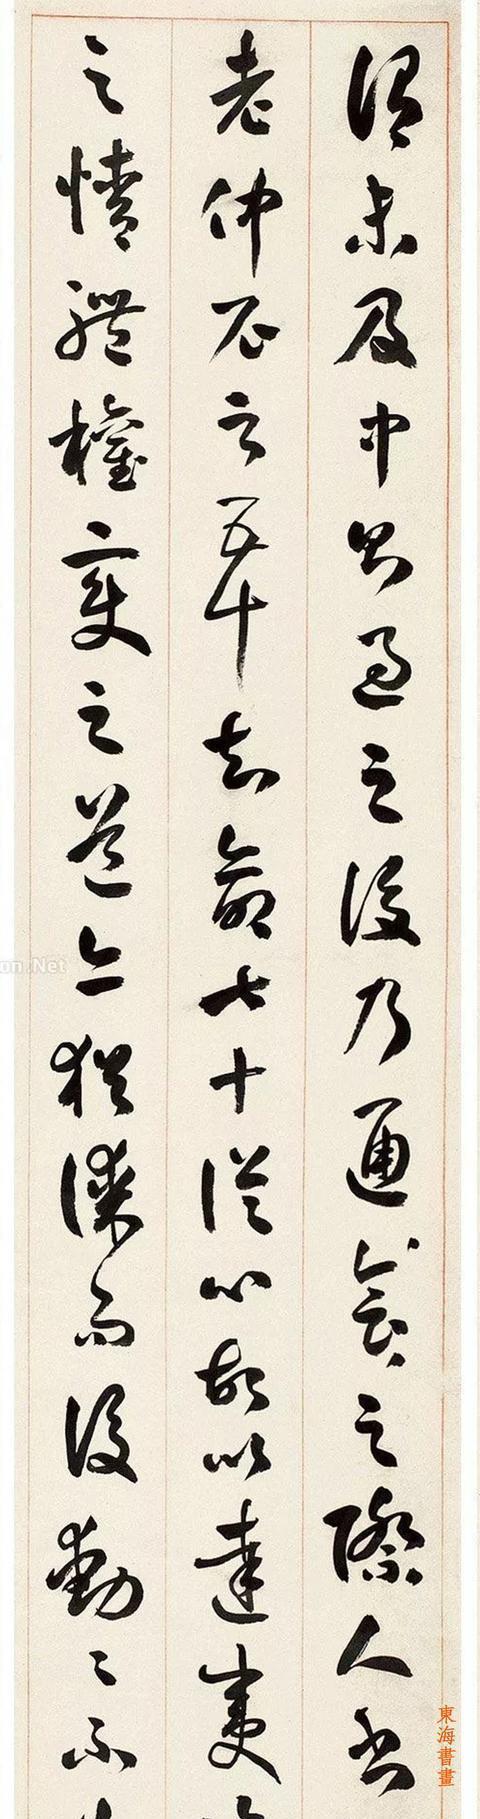 謂未及中則過之後乃通會之際人書
老仲尼云五十知命七十從心故以達夷
之情體權變之道亦猶謀而後動〻不
東海書畫